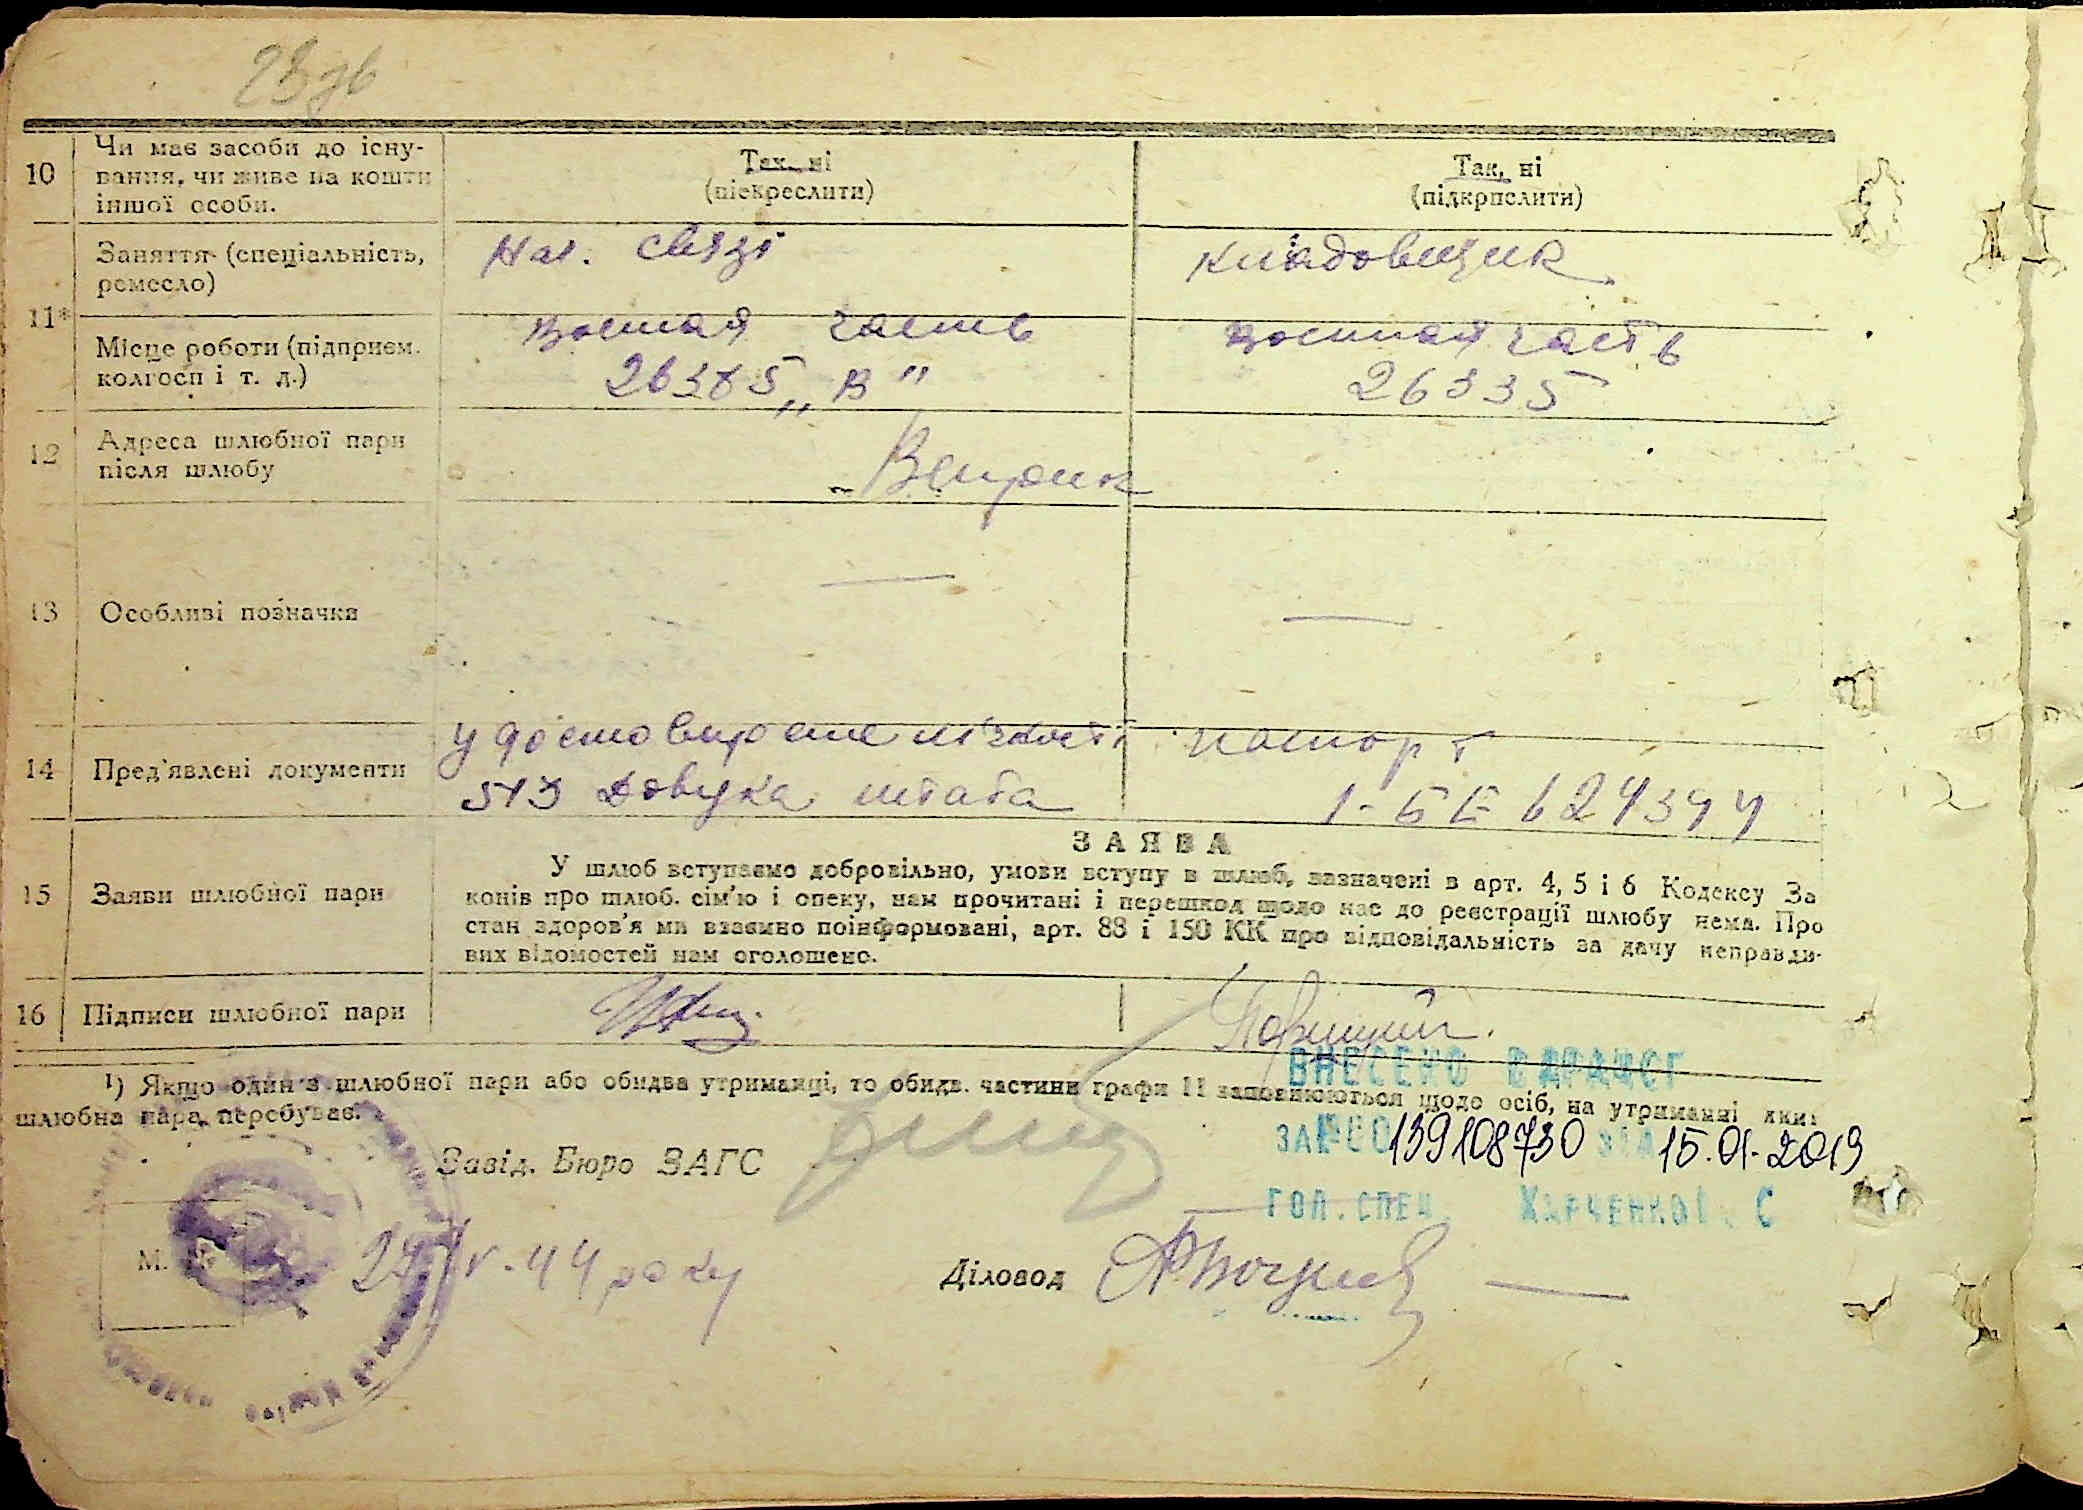 23 зв
10
Чи має засоби до існу-
вання, чи живе на кошти
іншої особи.
Так, ні
(підкреслити)
Так, ні
(підкрпслити)
11*
Заняття (спеціальність,
ремесло)
Нач. связі
Кладовщик
Місце роботи (підприєм.
колгосп і т. д.)
Военная часть
26385 „В"
Военная часть
26335
12
Адреса шлюбної пари
після шлюбу
Веприк
13
Особливі позначки
—
—
14
Пред'явлені документи
513
штата
паспорт
15
Заяви шлюбної пари
ЗАЯВА
У шлюб вступаємо добровільно, умови вступу в шлюб, зазначені в арт. 4, 5 і 6 Кодексу За
конів про шлюб. сім'ю і опеку, нам прочитані і перешкод щодо нас до реєстрації шлюбу нема. Про
стан здоров'я ми взаємно поінформовані, арт. 88 і 150 КК про відповідальність за дачу неправди-
вих відомостей нам оголошено.
16
Підписи шлюбної пари
¹) Якщо один з шлюбної пари або обидва утриманці, то обидв. частини графи 11 заповнюються щодо осіб, на утриманні яких
шлюбна пара перебуває.
ВНЕСЕНО В ДРАЦСГ
ЗА №00139108730 ВІД 15.01.2019
ГОЛ.СПЕЦ. ХАРЧЕНКО І. С
Завід. Бюро ЗАГС
М. П.
44 року
Діловод